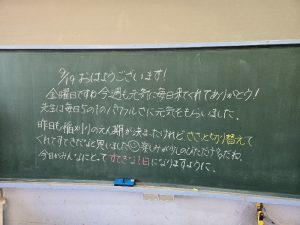 9/19 おはようございます!
金曜日ですね 今週も元気に毎日来てくれてありがとう!
先生は毎日5の1のパワフルさに元気をもらいました。
昨日も稲刈りのえん期が決まったけれど、ささっと切り替えて
くれてすてきだなと思いました 楽しみが少しのびただけだね。
今日がみんなにとってすてきな1日になりますように。